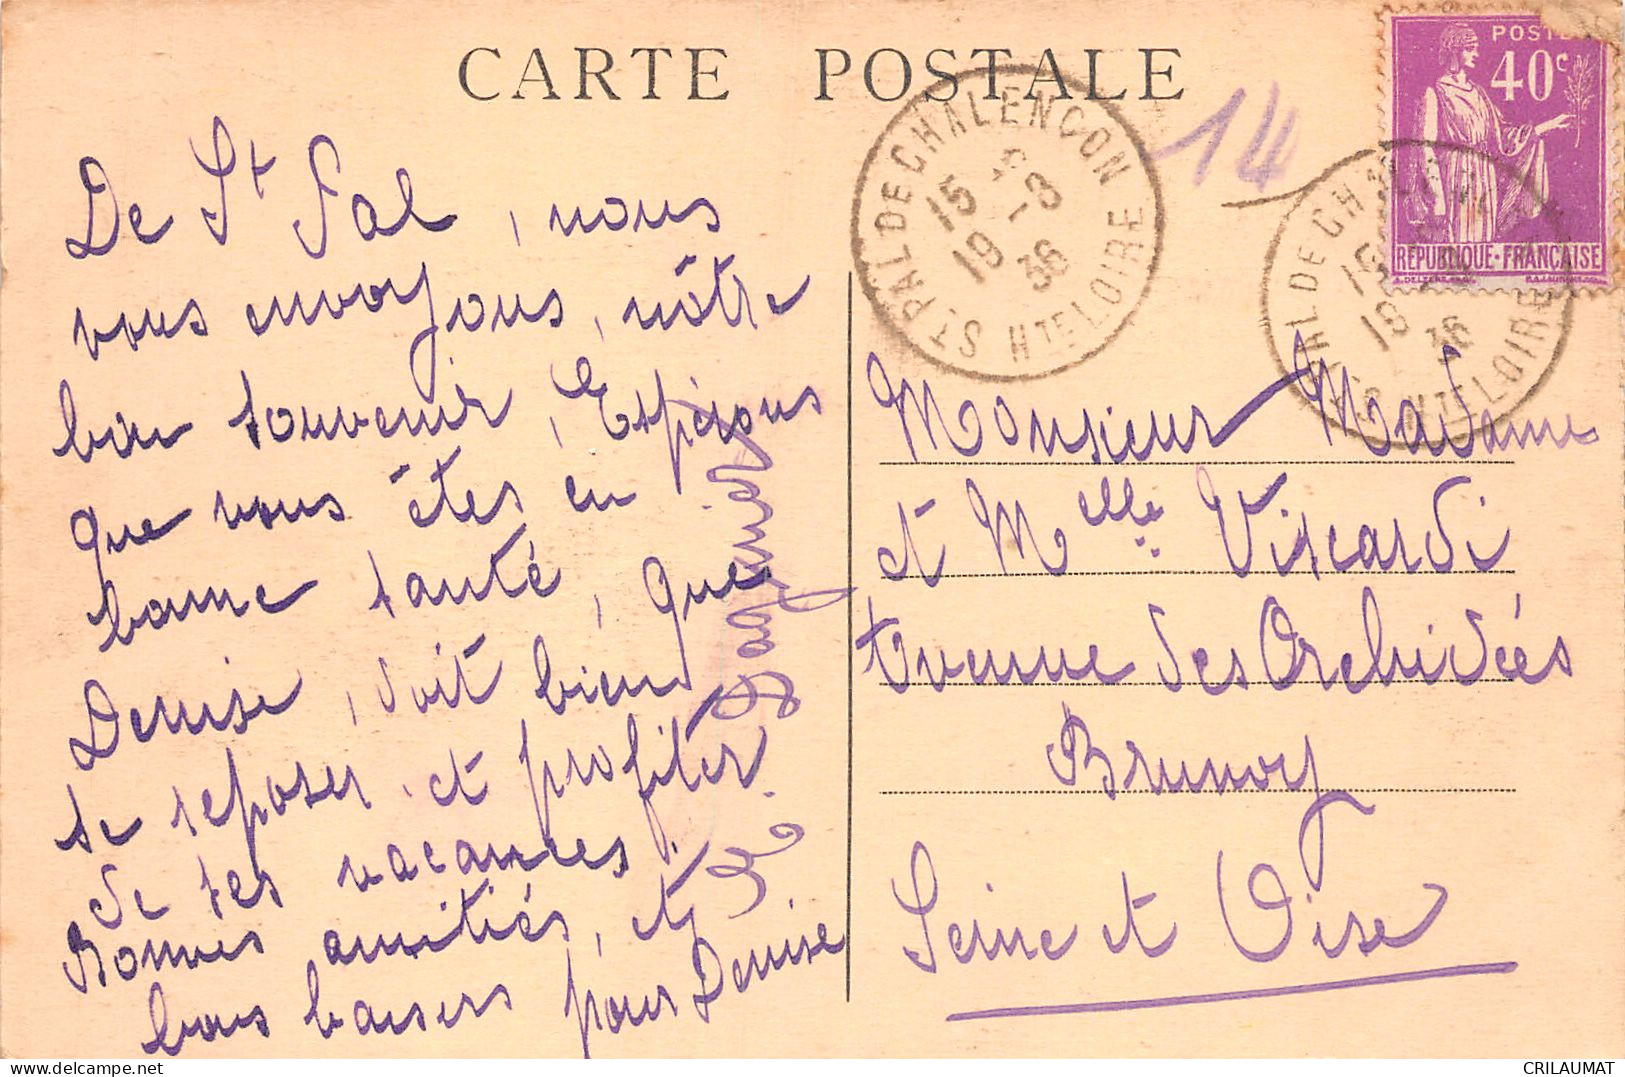 CARTE POSTALE
De St Pal, nous
vous envoyons, nôtre
bon souvenir, Espérons
que vous êtes en
bonne santé, que
Denise, doit bien
se reposer et profiter
de ses vacances.
Bonnes amitiés, et
bons baisers pour Denise
14
ST PAL DE CHALENCON
15 -3
19 36
HTE LOIRE
PAL DE CHALENCON
36
HTE LOIRE
POSTES
40c
RÉPUBLIQUE-FRANÇAISE
Monsieur Madame
et Melle Viscardi
Avenue des Orchidées
Brunoy
Seine et Oise
CRILAUMAT